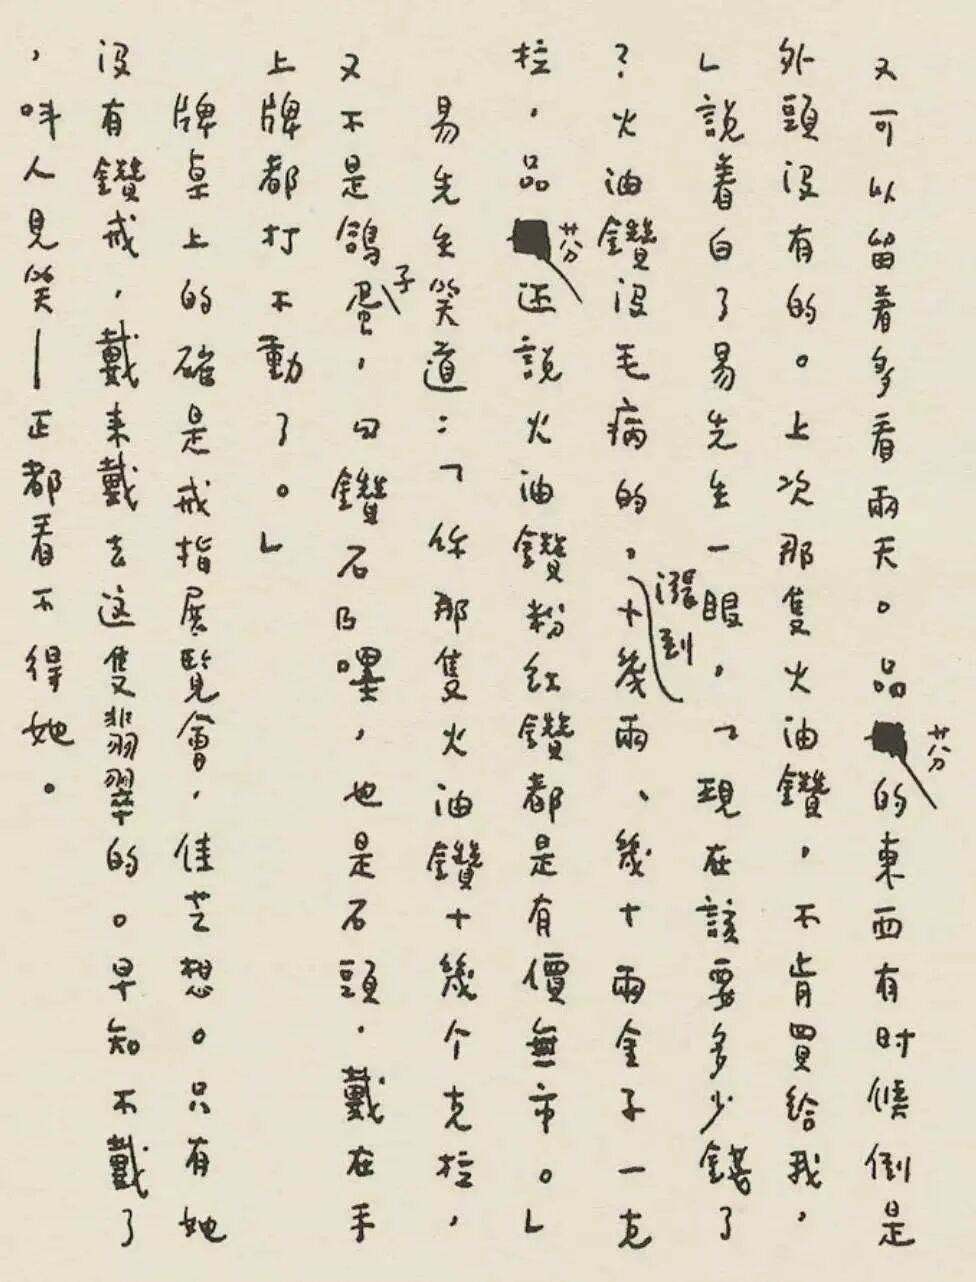 又可以留着多看兩天。品芬的東西有时候倒是
外頭沒有的。上次那隻火油鑽，不肯買給我，
」說着白了易先生一眼。「現在該要多少錢了
？火油鑽沒毛病的，漲到十幾兩、幾十兩金子一克
拉，品芬还說火油鑽粉紅鑽都是有價無市。」
易先生笑道：「你那隻火油鑽十幾个克拉，
又不是鴿子蛋，『鑽石』嚜，也是石頭，戴在手
上牌都打不動了。」
牌桌上的確是戒指展覽會，佳芝想。只有她
沒有鑽戒，戴来戴去这隻翡翠的。早知不戴了
，叫人見笑—正都看不得她。